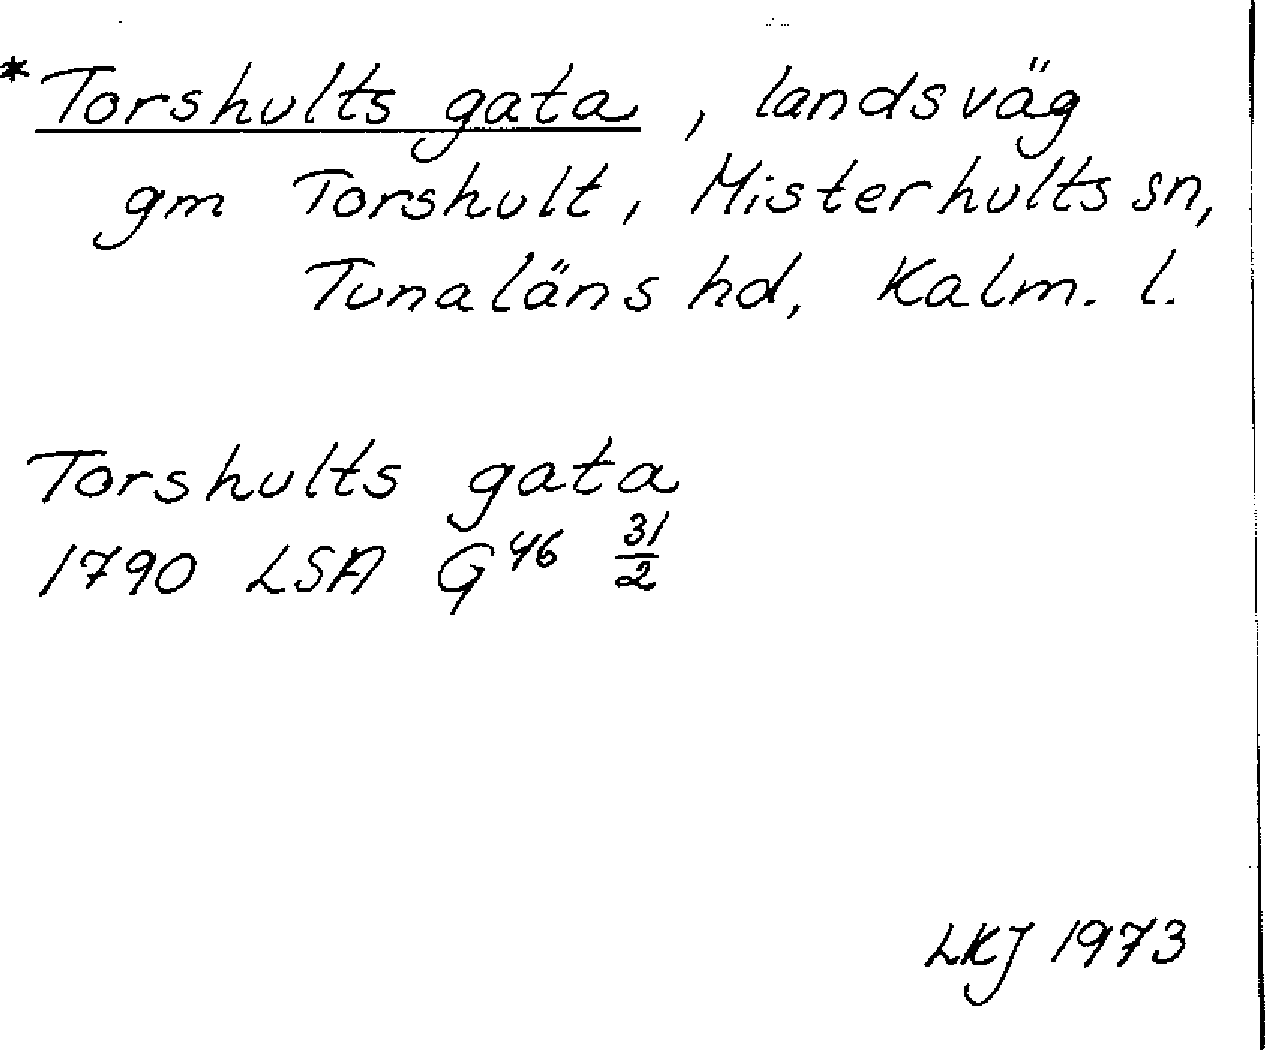 *Torshults gata, landsväg
gm Torshult, Misterhults sn,
Tunaläns hd, Kalm. l.
Torshults gata
1790 LSA G46 31/2
LKJ 1973